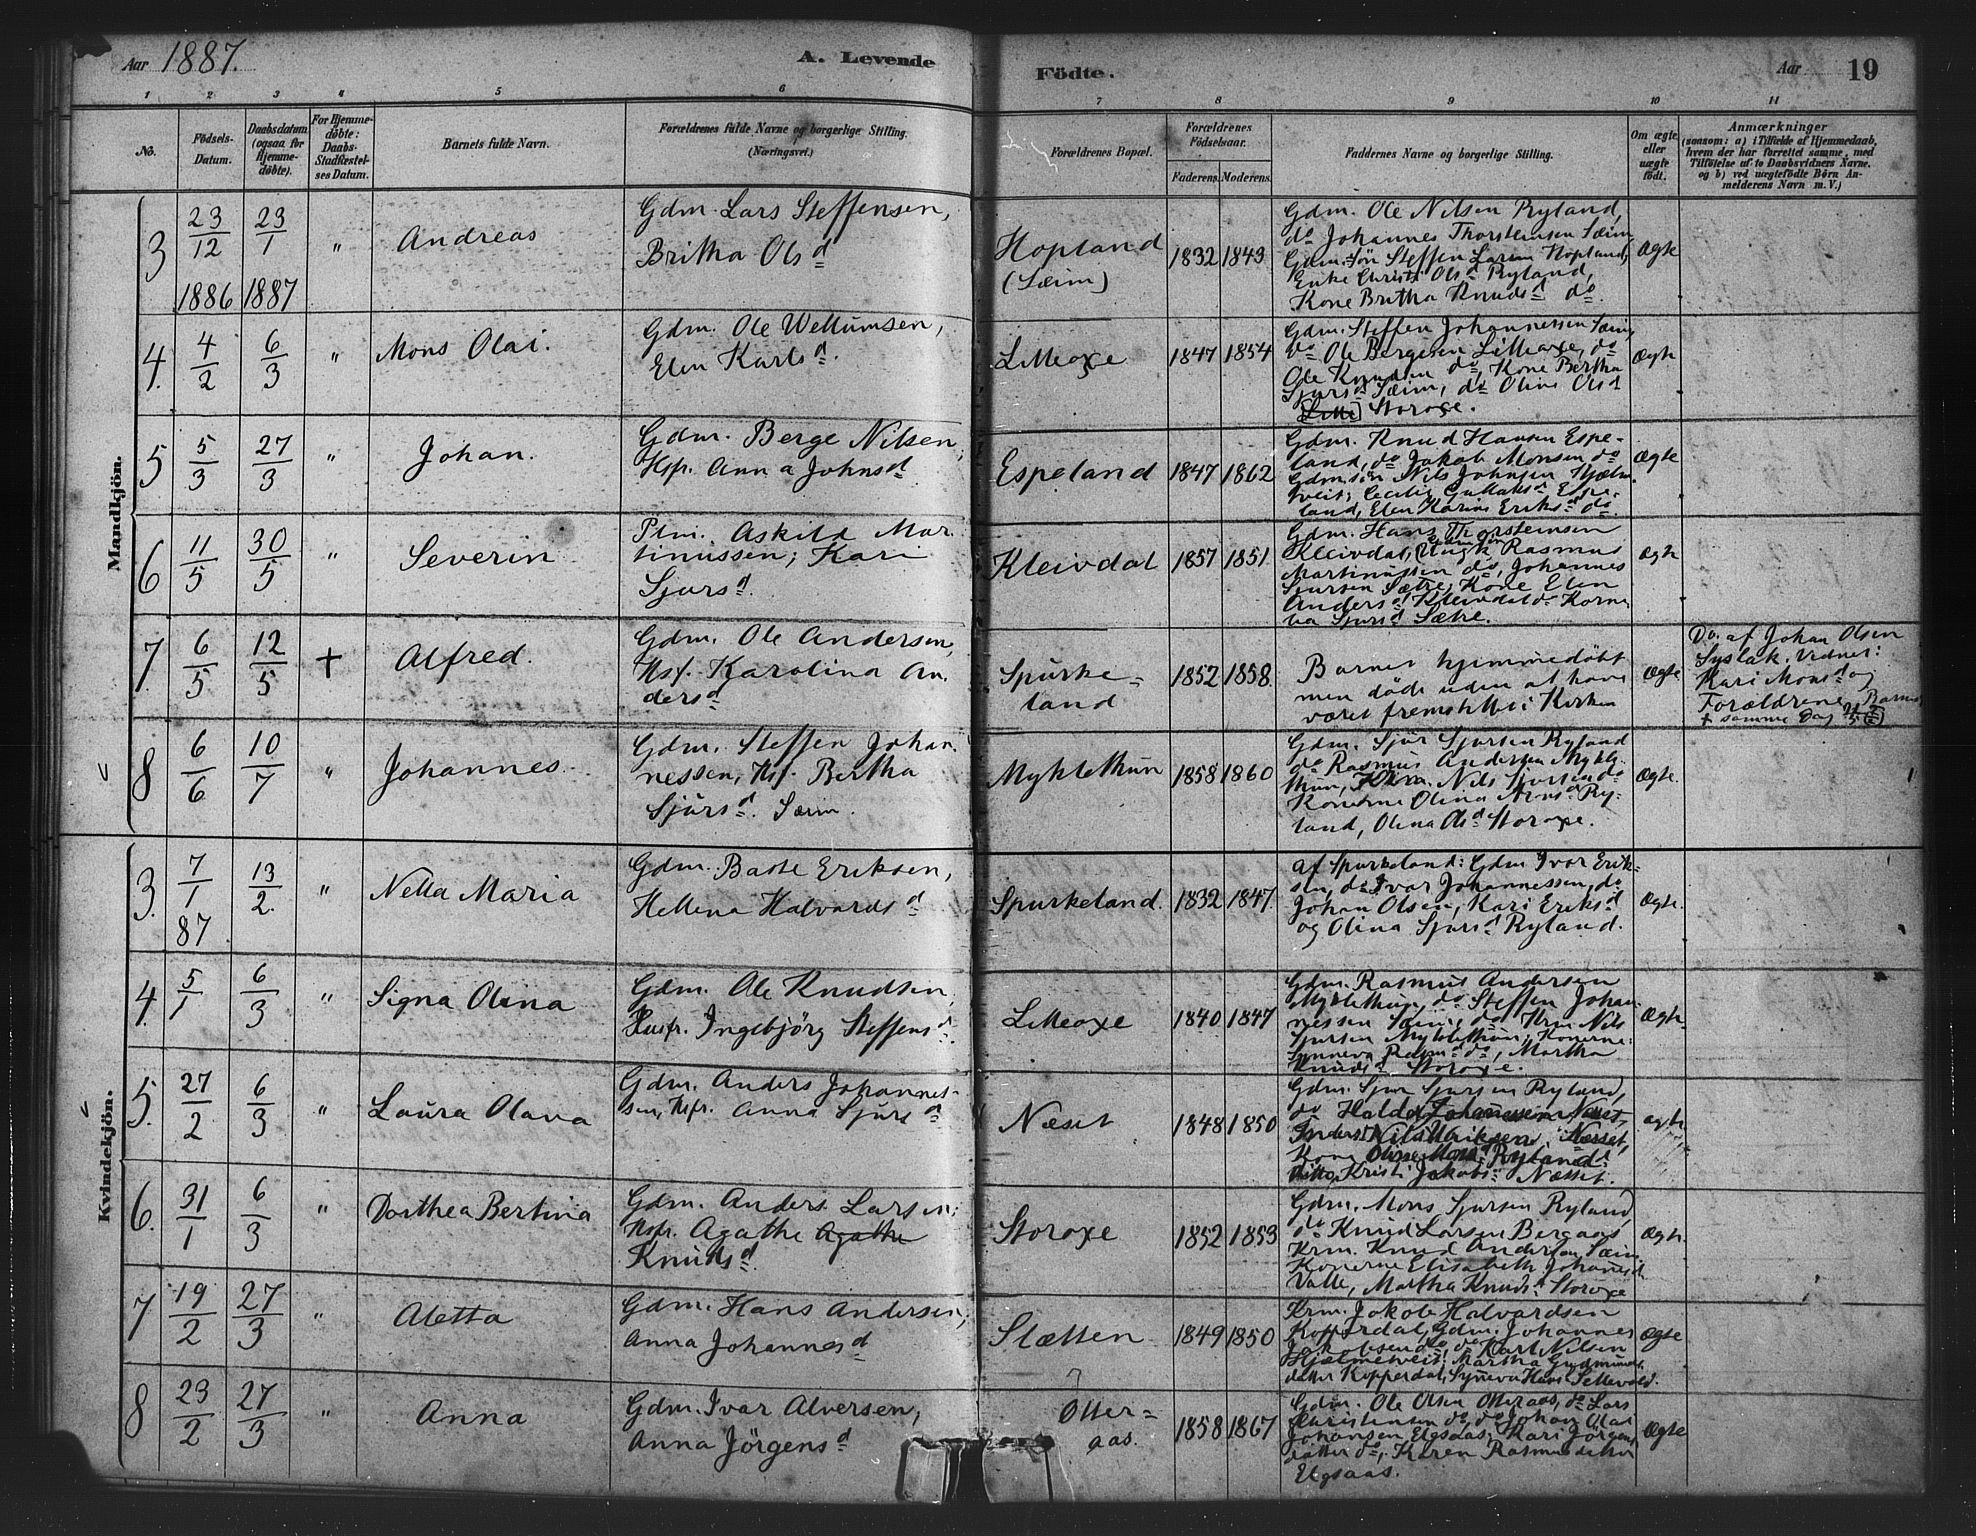 Aar 1887.
A. Levende
Födte.
Aar
19
1 2 3 4 5 6 7 8 9 10 11
No.
Födsels-
Datum.
Daabsdatum
(ogsaa for
Hjemme-
döbte).
For Hjemme-
döbte:
Daabs-
Stadfæstel-
ses Datum.
Barnets fulde Navn.
Forældrenes fulde Navne og borgerlige Stilling.
(Næringsvei.)
Forældrenes Bopæl.
Forældrenes
Födselsaar.
Faderens. Moderens.
Faddernes Navne og borgerlige Stilling.
Om ægte
eller
uægte
født.
Anmærkninger
(saasom: a) i Tilfælde af Hjemmedaab,
hvem der har forrettet samme, med
Tilföielse af to Daabsvidners Navne.
og b) ved uægtefödte Börn An-
melderens Navn m. V.)
Mandkjön.
3 23/12 1886 23/1 1887 " Andreas
Gdm. Lars Steffensen,
Britha Olsd
Hopland
(Sæim)
1832 1849
Gdm. Ole Nilsen Ryland,
do Johannes Thorsteinsen Sæim,
Gdm.søn Steffen Larsen Hopland,
Enke Christi Olsd Ryland,
Kone Britha Knudsd do.
Ægte
4. 4/2 6/3 " Mons Olai.
Gdm. Ole Wellumsen,
Elen Karlsd
Litleoxe
1847 1854
Gdm. Steffen Johannessen Sæim,
do Ole Bergesen Litleoxe, do
Ole Knudsen do, Kone Bertha
Sjursd Sæim, do Oline Olsd
Storoxe.
Ægte
5 5/3 27/3 " Johan.
Gdm. Berge Nilsen,
Hsf. Anna Johnsd
Espeland
1847 1862
Gdm. Knud Hansen Espe-
land, do Jakob Monsen do
Gdm.søn Nils Johnsen Hjelm-
tveit, Cecilie Gullaksd Espe-
land, Elen Karine Eriksd do.
Ægte
6 11/5 30/5 " Severin
Plm. Askild Mar-
tinussen; Kari
Sjursd.
Kleivdal
1857 1851
Gdm. Hans Thorsteinsen
Kleivdal, Ungk. Rasmus
Martinussen do, Johannes
Sjursen Sætre, Kone Elen
Andersd Kleivdal do Korne-
lia Sjursd Sætre.
ægte
7. 6/5 12/5 + Alfred.
Gdm. Ole Andersen,
Hsf. Karolina An-
dersd
Spurke-
land
1852 1858.
Barnet hjemmedøbt
men døde uden at have
været fremstillet i Kirken
Ægte
Do. af Johan Olsen
Syslak. Vidner:
Kari Monsd og
Forældrene. Barnet
+ samme Dag
8 6/6 10/7 " Johannes
Gdm. Steffen Johan-
nessen, Hsf. Bertha
Sjursd. Sæim.
Myklethun
1858 1860
Gdm. Sjur Sjursen Ryland
do Rasmus Andersen Mykle-
thun, Krm. Nils Sjursen do
Konerne Olina Monsd Ry-
land, Olina Olsd Storoxe.
Ægte.
Kvindekjön.
3. 7/1 87 13/2. " Nella Maria
Gdm. Baste Eriksen,
Hellena Halvardsd
Spurkeland.
1832 1847
af Spurkeland: Gdm Ivar Erik-
sen, do Ivar Johannessen, do
Johan Olsen, Kari Eriksd
og Olina Sjursd Ryland.
Ægte.
4. 5/1 6/3 " Signa Olina
Gdm. Ole Knudsen,
Husfr. Ingebjörg Steffensd
Litleoxe
1840 1847
Gdm. Rasmus Andersen
Myklethun, do Steffen Johan-
nessen Sæim, do Krm Nils
Sjursen Myklethun, Konerne:
Synneva Rasm.d do, Martha
Knudsd Storoxe.
Ægte.
5. 27/2 6/3 " Laura Olava
Gdm. Anders Johannes-
sen, Hsfr. Anna Sjursd
Næset
1848 1850
Gdm. Sjur Sjursen Ryland,
do Haldor Johannessen Næset,
Nils Næsset,
Kone Oline Monsd Ryland
Ditto Kristi Jakobsd Næsset.
ægte
6. 31/1 6/3 " Dorthea Bertina
Gdm. Anders Larsen;
Hsfr. Agathe Agathe
Knudsd.
Storoxe
1852 1853
Gdm. Mons Sjursen Ryland,
do Knud Larsen Bergaas
Krm. Knud Andersen Sæim
Konerne Elisabeth Johannesd
Valle, Martha Knudsd Storoxe
Ægte.
7 19/2 27/3 " Aletta
Gdm. Hans Andersen,
Anna Johannesd
Slætten
1849 1850
Krm. Jakob Halvardsen
Kopperdal, Gdm. Johannes
Jakobsen do, do Karl Nilsen
Hjælmetveit, Martha Gudmunds-
datter Kopperdal, Synneva Hans. Sellevold.
Ægte
8 23/2 27/3 " Anna
Gdm. Ivar Alversen,
Anna Jörgensd
Otter-
aas.
1858 1867
Gdm. Ole Olsen Otteraas, do Lars
Christensen do, do Johan Olai
Johansen Elgsaas, Kari Jörgens-
datter do, Karen Rasmusdatter
Elgsaas.
Ægte